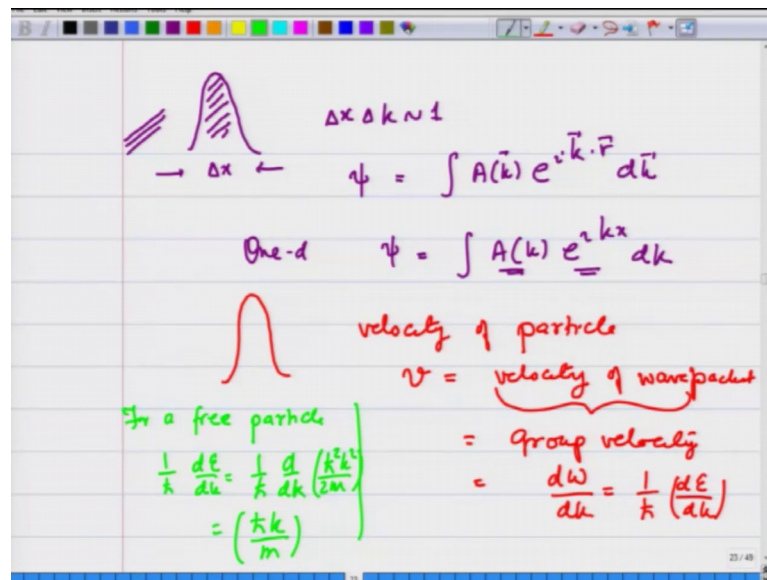 Δx Δk ~ 1
→ Δx ←
ψ = ∫ A(k⃗) e^{i k⃗·r⃗} dk⃗
One-d ψ = ∫ A(k) e^{ikx} dk
velocity of particle
v = velocity of wavepacket
= Group velocity
= dω/dk = 1/ħ (dE/dk)
For a free particle
1/ħ dE/dk = 1/ħ d/dk (ħ²k²/2m)
= (ħk/m)
23 / 49
23